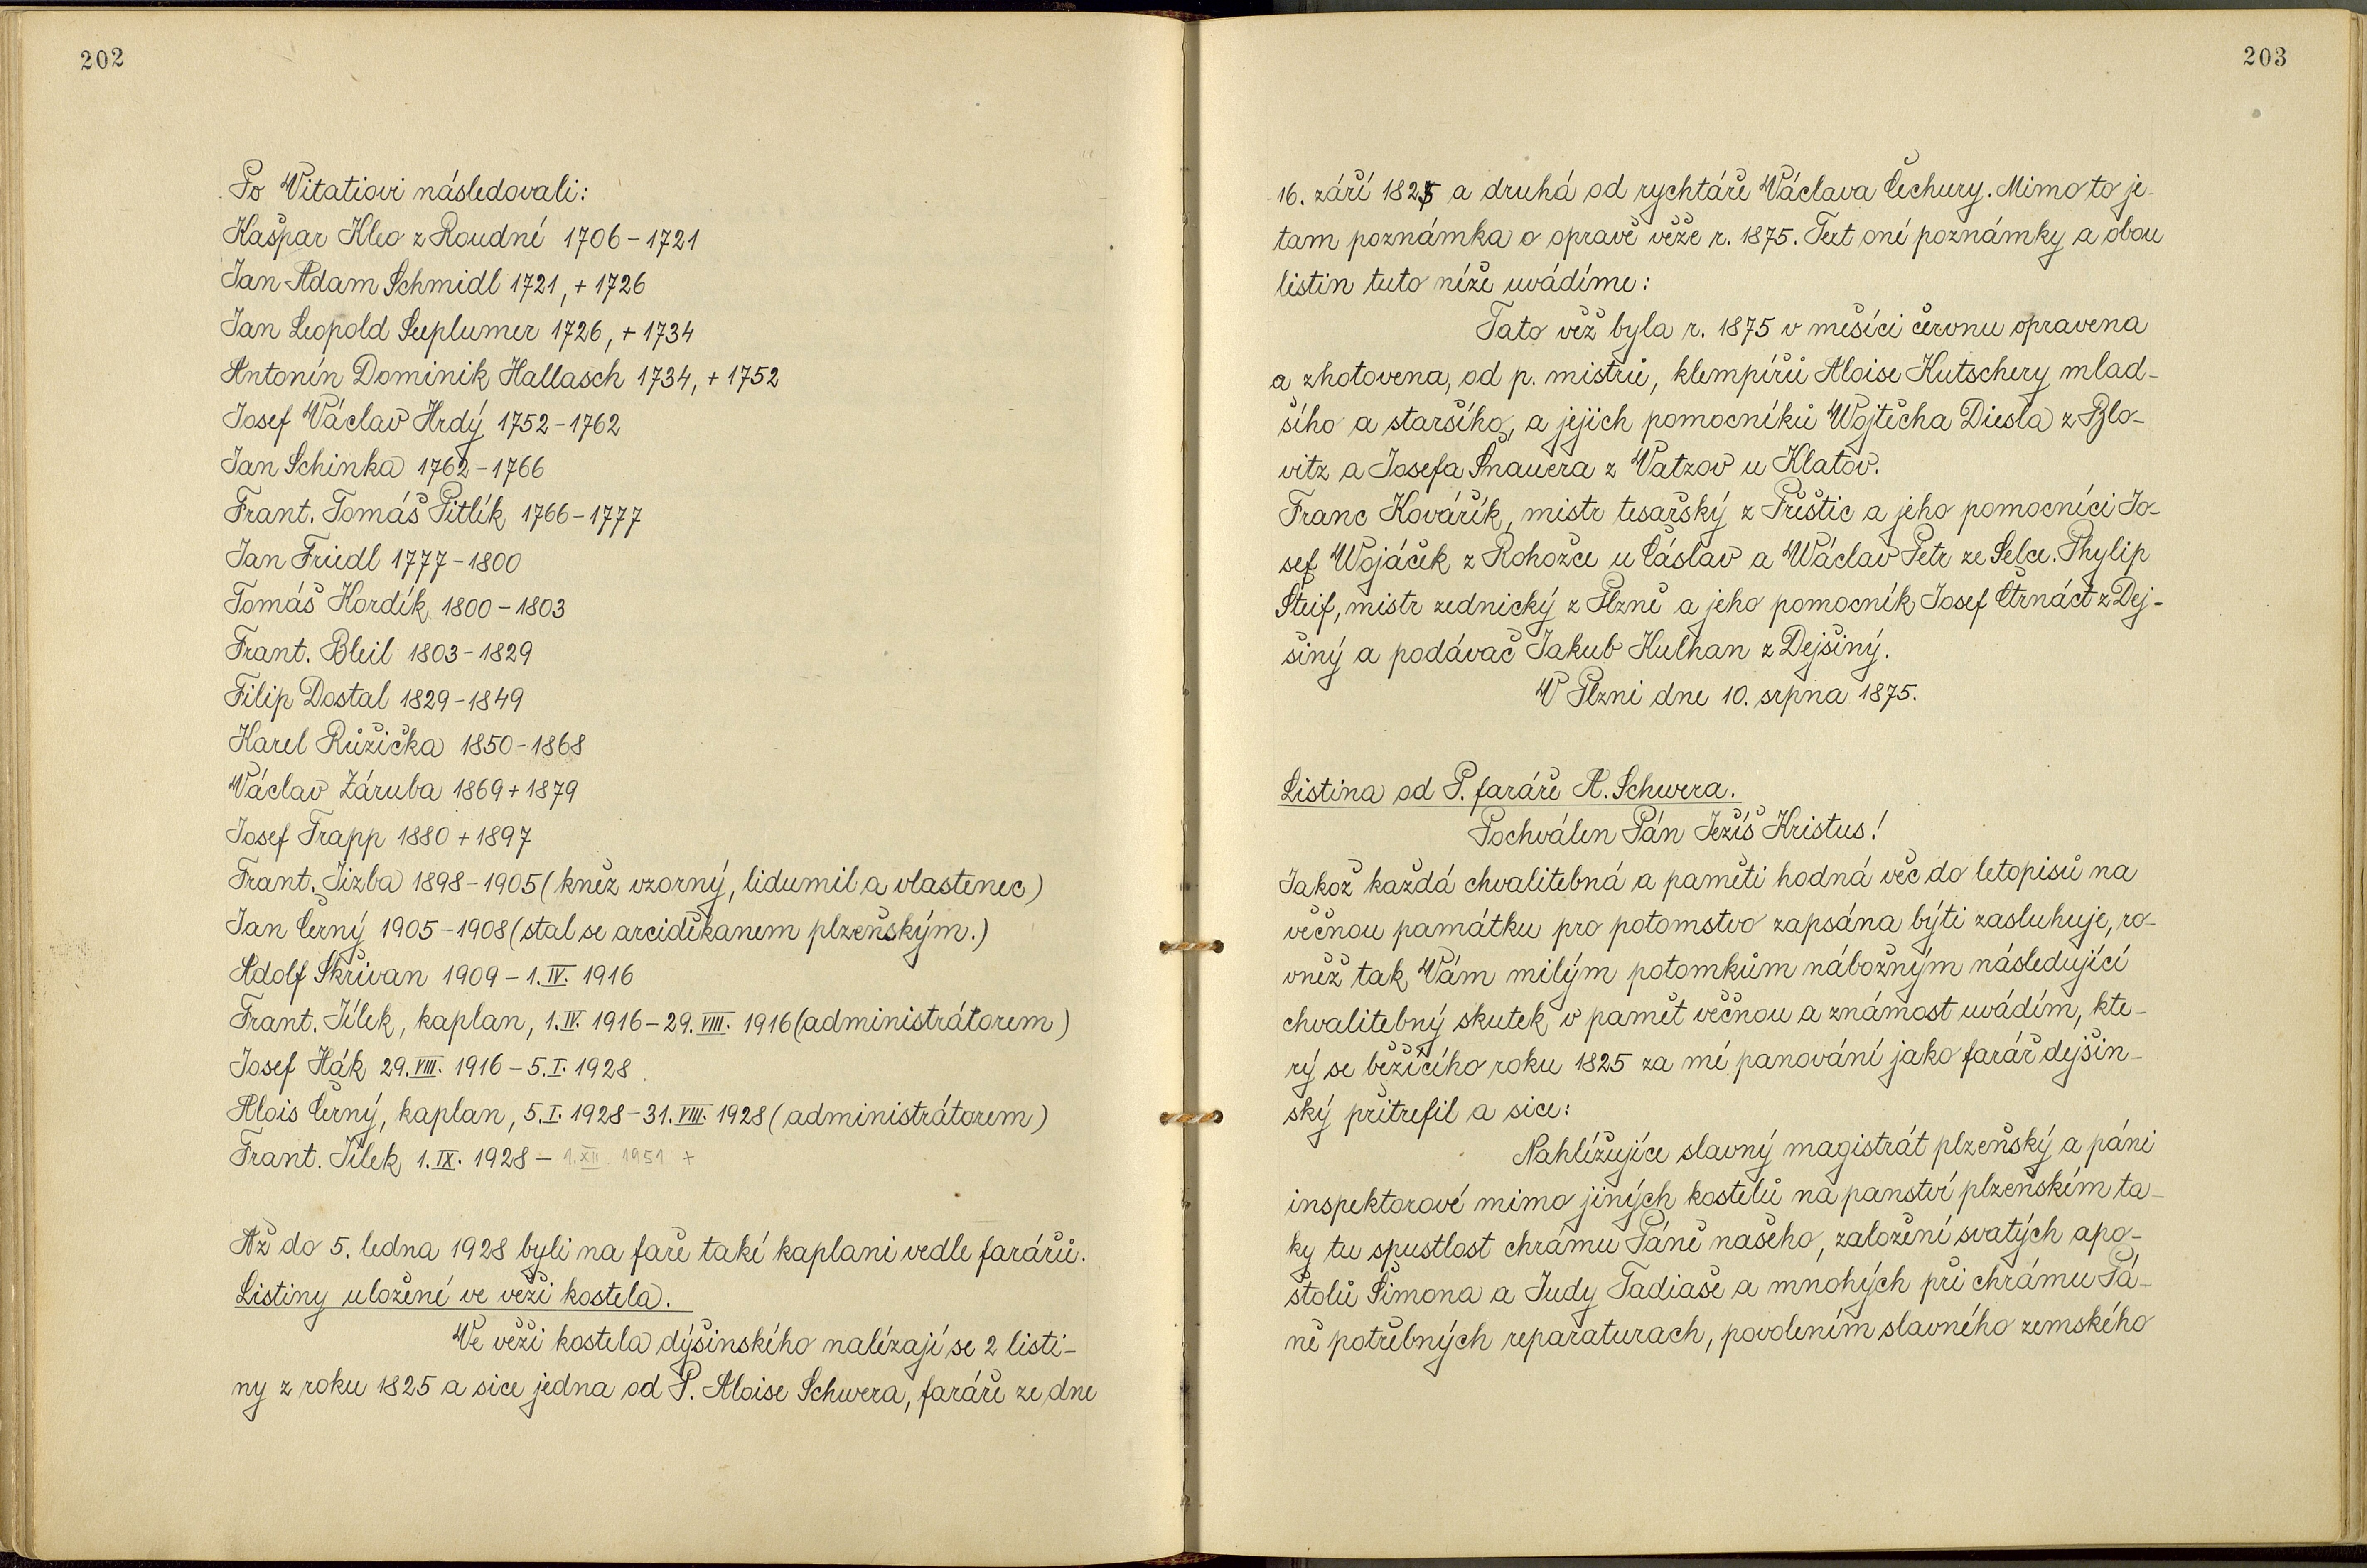 202
Po Vitatiovi následovali:
Kašpar Kleo z Roudné 1706-1721
Jan Adam Schmidl 1721, + 1726
Jan Leopold Seeplumer 1726, + 1734
Antonín Dominik Hallasch 1734, + 1752
Josef Václav Hrdý 1752-1762
Jan Schinka 1762-1766
Frant. Tomáš Pitlík 1766-1777
Jan Friedl 1777-1800
Tomáš Hordík 1800-1803
Frant. Bleil 1803-1829
Filip Dostal 1829-1849
Karel Růžička 1850-1868
Václav Záruba 1869 + 1879
Josef Trapp 1880 + 1897
Frant. Jizba 1898-1905 (kněz vzorný, lidumil a vlastenec)
Jan Černý 1905-1908 (stal se arciděkanem plzeňským.)
Adolf Skřivan 1909 - 1.IV. 1916
Frant. Jílek, kaplan, 1.IV. 1916 - 29.VIII. 1916 (administrátorem)
Josef Hák 29.VIII. 1916 - 5.I. 1928.
Alois Černý, kaplan, 5.I. 1928 - 31.VIII. 1928 (administrátorem)
Frant. Jílek 1.IX. 1928 - 1.XII. 1951 +
Až do 5. ledna 1928 byli na faře také kaplani vedle farářů.
Listiny uložené ve věži kostela.
Ve věži kostela dýšinského nalézají se 2 listi-
ny z roku 1825 a sice jedna od P. Aloise Schwera, faráře ze dne
203
16. září 1825 a druhá od rychtáře Václava Čechury. Mimo to je
tam poznámka o opravě věže r. 1875. Text oné poznámky a obou
listin tuto níže uvádíme:
Tato věž byla r. 1875 v měsíci červnu opravena
a zhotovena, od p. mistrů, klempířů Aloise Kutschery mlad-
šího a staršího, a jejich pomocníků Wojtěcha Diesla z Blo-
vitz a Josefa Šnauera z Vatzov u Klatov.
Franc Kovářík, mistr tesařský z Přeštic a jeho pomocníci Jo-
sef Wojáček z Rohožce u Čáslav a Wáclav Petr ze Selce. Phylip
Steif, mistr zednický z Plzně a jeho pomocník Josef Čtrnáct z Dej-
šiný a podávač Jakub Kulhan z Dejšiný.
V Plzni dne 10. srpna 1875.
Listina od P. faráře A. Schwera.
Pochválen Pán Ježíš Kristus!
Jakož každá chvalitebná a paměti hodná věc do letopisů na
věčnou památku pro potomstvo zapsána býti zasluhuje, ro-
vněž tak Vám milým potomkům nábožným následující
chvalitebný skutek v paměť věčnou a známost uvádím, kte-
rý se běžícího roku 1825 za mé panování jako farář dejšin-
ský přitrefil a sice:
Nahlížujíce slavný magistrát plzeňský a páni
inspektorové mimo jiných kostelů na panství plzeňském ta-
ky tu spustlost chrámu Páně našeho, založení svatých apo-
štolů Šimona a Judy Tadiáše a mnohých při chrámu Pá-
ně potřebných reparaturach, povolením slavného zemského